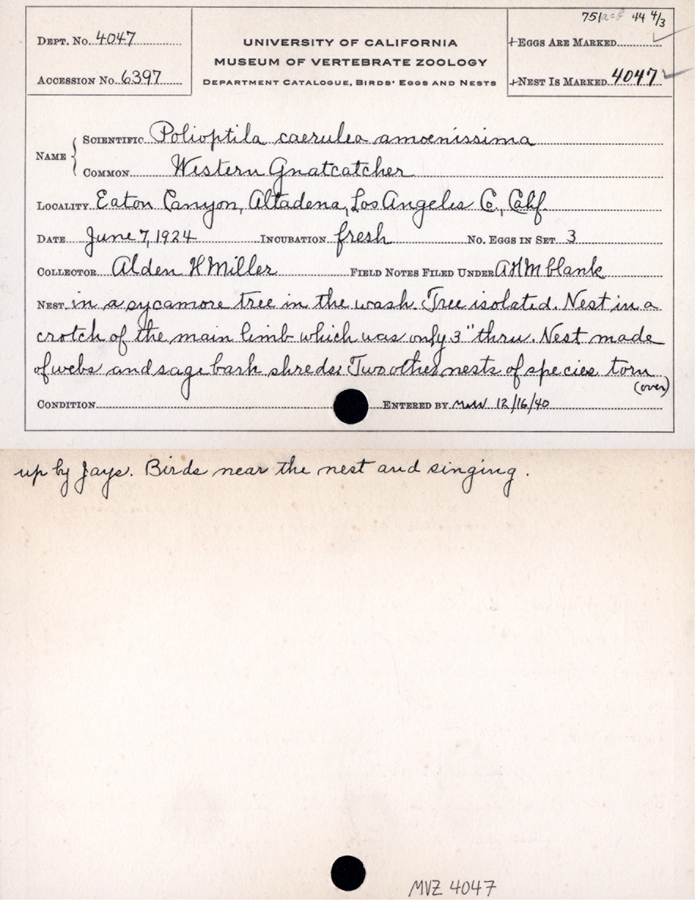 751 44 4/3
DEPT. NO. 4047
ACCESSION NO. 6397
UNIVERSITY OF CALIFORNIA
MUSEUM OF VERTEBRATE ZOOLOGY
DEPARTMENT CATALOGUE, BIRDS' EGGS AND NESTS
+EGGS ARE MARKED
+NEST IS MARKED 4047
NAME { SCIENTIFIC Polioptila caerulea amoenissima
COMMON Western Gnatcatcher
LOCALITY Eaton Canyon, Altadena, Los Angeles Co., Calif.
DATE June 7, 1924 INCUBATION fresh NO. EGGS IN SET 3
COLLECTOR Alden H Miller FIELD NOTES FILED UNDER AHM blank
NEST in a sycamore tree in the wash. Tree isolated. Nest in a
crotch of the main limb which was only 3" thru. Nest made
of webs and sage bark shreds. Two other nests of species torn
(over)
CONDITION ENTERED BY MWW 12/16/40
up by Jays. Birds near the nest and singing.
MVZ 4047